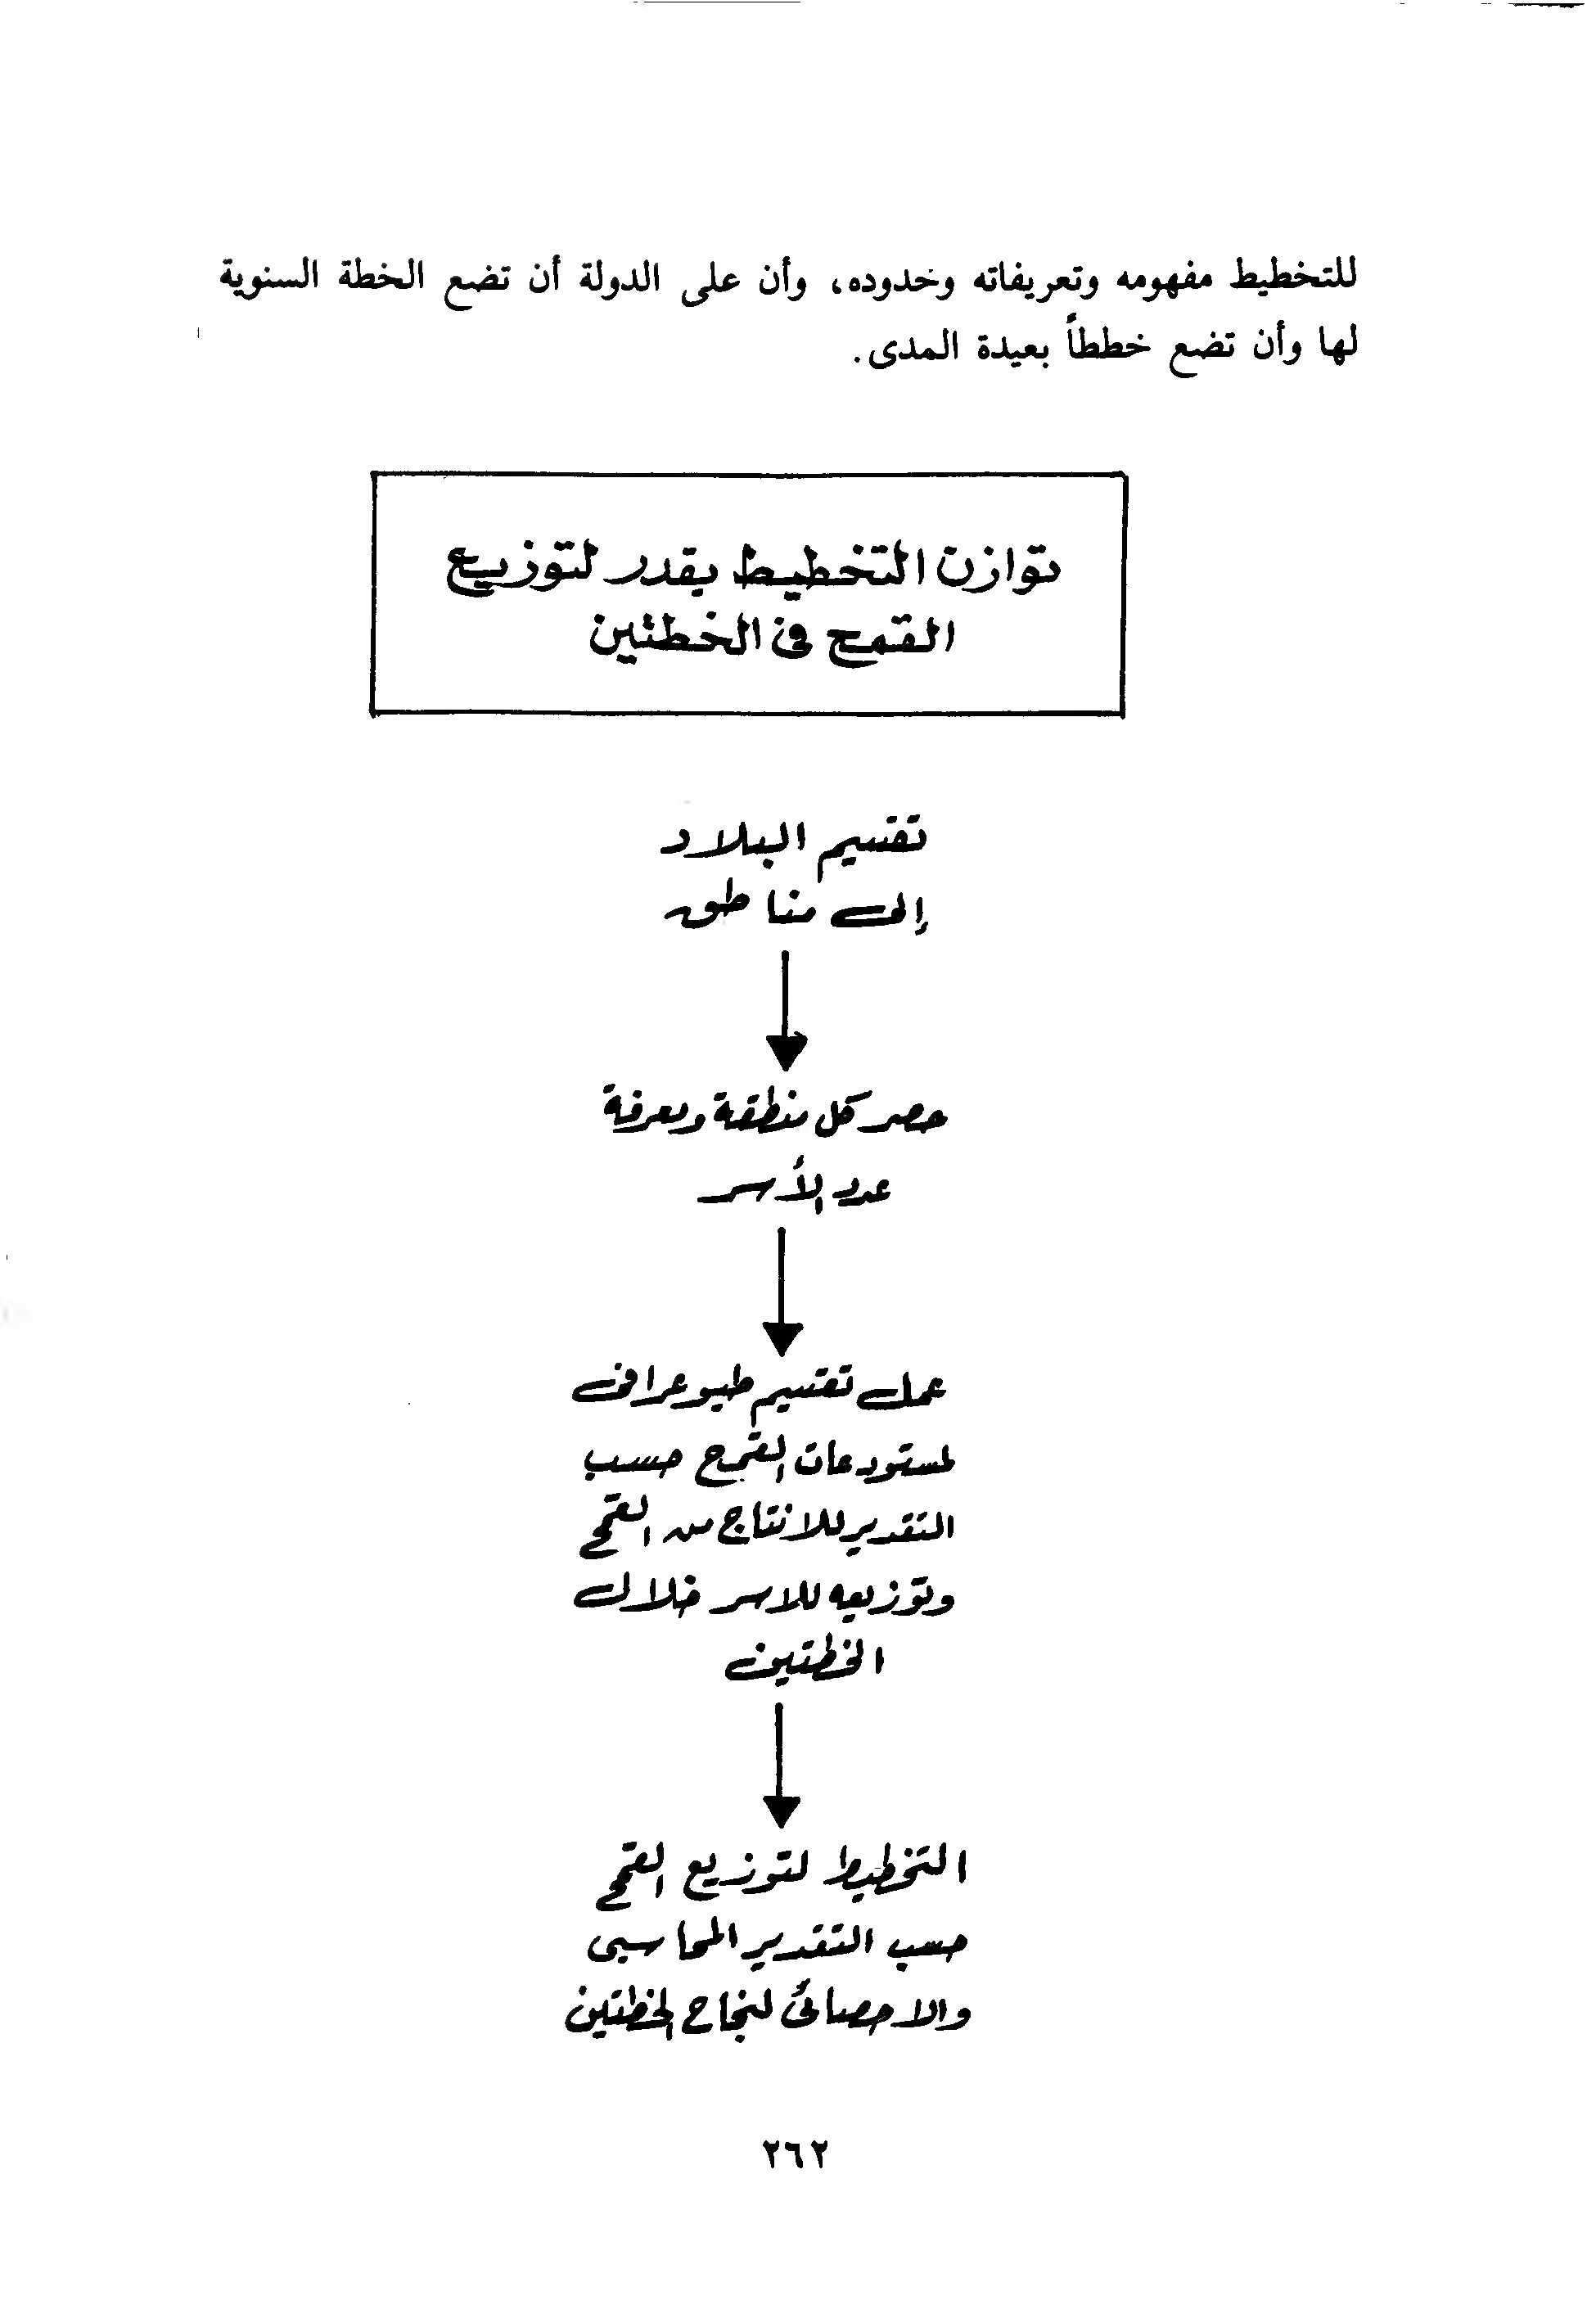 للتخطيط مفهومه وتعريفاته وخدوده، وأن على الدولة أن تضع الخطة السنوية
لها وأن تضع خططاً بعيدة المدى.
توازن التخطيط بقدر لتوزيع
القمح في الخطتين
تقسيم البلاد
إلى مناطق
حصر كل منطقة ومعرفة
عدد الأسر
عمل تقسيم طبوعرافى
لمستودعات القمح حسب
التقدير للانتاج من القمح
وتوزيعه للاسر خلال
الخطتين
التخطيط لتوزيع القمح
حسب التقدير المحاسبى
والاحصائى لنجاح الخطتين
٢٦٢